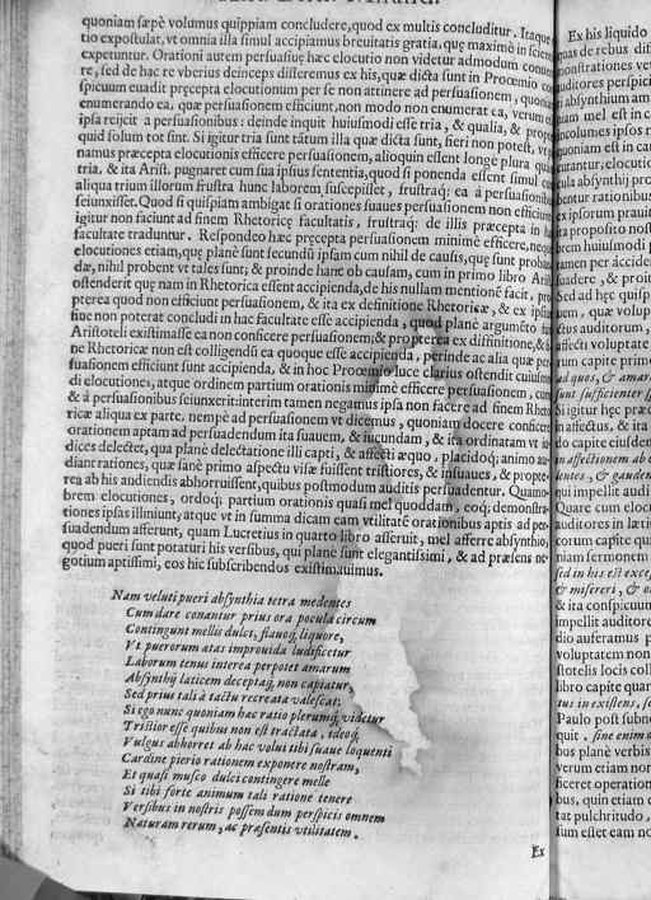 quoniam sæpè volumus quippiam concludere, quod ex multis concluditur. Itaque
tio expostulat, vt omnia illa simul accipiamus breuitatis gratia, quę maximè in
expetuntur. Orationi autem persuasiuę hæc elocutio non videtur admodum
re, sed de hac re vberius deinceps disseremus ex his, quæ dicta sunt in Proœmio
spicuum euadit pręcepta elocutionum per se non attinere ad persuasionem,
enumerando ea, quæ persuasionem efficiunt, non modo non enumerat ea, verum
ipsa reijcit à persuasionibus: deinde inquit huiusmodi esse tria, & qualia, &
quid solum tot sint. Si igitur tria sunt tãtum illa quæ dicta sunt, fieri non potest,
namus præcepta elocutionis efficere persuasionem, alioquin essent longe plura
tria. & ita Arist. pugnaret cum sua ipsius sententia, quod si ponenda essent simul
aliqua trium illorum frustra hunc laborem suscepisset, frustraq; ea à persuasionib
seiunxisset. Quod si quispiam ambigat si orationes suaues persuasionem non efficiun
igitur non faciunt ad finem Rhetoricę facultatis, frustraq; de illis præcepta in
facultate traduntur. Respondeo hæc pręcepta persuasionem minimè efficere,
elocutiones etiam, quę planè sunt secundũ ipsam cum nihil de causis, quę sunt
dæ, nihil probent vt tales sunt; & proinde hanc ob causam, cum in primo libro
ostenderit quę nam in Rhetorica essent accipienda, de his nullam mentionẽ facit,
pterea quod non efficiunt persuasionem, & ita ex definitione Rhetoricæ, & ex
siue non poterat concludi in hac facultate esse accipienda, quod planè argumẽto
Aristoteli existimasse ea non conficere persuasionem; & propterea ex diffinitione, &
ne Rhetoricæ non est colligendũ ea quoque esse accipienda, perinde ac alia quæ
suasionem efficiunt sunt accipienda, & in hoc Proœmio luce clarius ostendit
di elocutiones, atque ordinem partium orationis minimè efficere persuasionem,
& à persuasionibus seiunxerit: interim tamen negamus ipsa non facere ad finem
ricæ aliqua ex parte. nempè ad persuasionem vt dicemus, quoniam docere conficere
orationem aptam ad persuadendum ita suauem, & iucundam, & ita ordinatam vt
dices delectet, qua planè delectatione illi capti, & affecti æquo, placidoq; animo
diant rationes, quæ sanè primo aspectu visæ fuissent tristiores, & insuaues, & propte-
rea ab his audiendis abhorruissent, quibus postmodum auditis persuadentur. Quamo-
brem elocutiones, ordoq; partium orationis quasi mel quoddam, eoq; demonstra-
tiones ipsas illiniunt, atque vt in summa dicam eam vtilitatẽ orationibus aptis ad per-
suadendum afferunt, quam Lucretius in quarto libro asseruit, mel afferre absynthio,
quod pueri sunt potaturi his versibus, qui planè sunt elegantissimi, & ad præsens ne-
gotium aptissimi, eos hic subscribendos existimauimus.
Nam veluti pueri absynthia tetra medentes
Cum dare conantur prius ora pocula circum
Contingunt mellis dulci, flauoq; liquore,
Vt puerorum ætas improuida ludificetur
Laborum tenus interea perpotet amarum
Absynthij laticem deceptaq; non capiatur,
Sed prius tali à tactu recreata valescat;
Si ego nunc quoniam hæc ratio plerumq; videtur
Tristior esse quibus non est tractata, ideoq;
Vulgus abhorret ab hac volui tibi suaue loquenti
Cardine pierio rationem exponere nostram,
Et quasi musco dulci contingere melle
Si tibi forte animum tali ratione tenere
Versibus in nostris possem dum perspicis omnem
Naturam rerum, ac præsentis vtilitatem.
Ex
Ex his liquido
quas de rebus
monstrationes
auditores
si absynthium
quam mel est in
incolumes ipsos
quoniam est in
curantur; elocutio
cula absynthij
bentur rationibus
ex ipsorum
ita proposito
brem huiusmodi
tamen per
suadere, &
Sed ad hęc
uem, quæ
ctus auditorum,
affecti voluptate
rum capite primo
ad ques, &
sunt sufficienter
Si igitur hęc
in affectus, & ita
do capite eiusdem
in affectionem ab
lentes, &
qui impellit
Quare cum
auditores in
eorum capite
niam sermonem
sed in his est
& misereri, &
& ita
impellit
dio auferamus
voluptatem non
stotelis locis
libro capite
tus in existens,
Paulo post
quit. sine enim
bus planè verbis
verum etiam non
ficeret
bus, quin etiam
tat pulchritudo,
sum esset eam